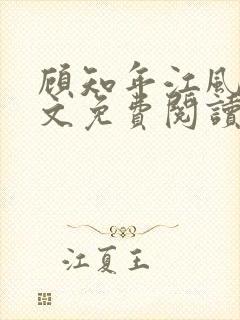 顾知年江风
文免費閱讀
江夏王